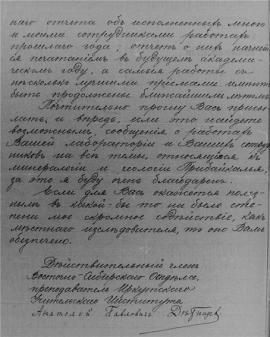 наго отчета объ исполненныхъ мною
и моими сотрудниками работахъ
прошлаго года; отчетъ о нихъ начнется
печатаніемъ въ будущемъ академи-
ческомъ году, а самыя работы
нѣсколько лучшими
быть продолжены ближайшимъ лѣтомъ.
Почтительно прошу Васъ присы-
лать и впредь, если это найдете
возможнымъ, сообщенія о работахъ
Вашей лабораторіи и Вашихъ сотруд-
никовъ на всѣ темы, относящіяся къ
минералогіи и геологіи Прибайкалья,
за что я буду очень благодаренъ.
Если для Васъ окажется полез-
нымъ въ какой-бы то ни было сте-
пени мое скромное содѣйствіе, какъ
мѣстнаго изслѣдователя, то оно Вамъ
обезпечено.
Дѣйствительный членъ
Восточно-Сибирскаго Отдѣла,
преподаватель Иркутскаго
Учительскаго Института
Анатолій Павловичъ